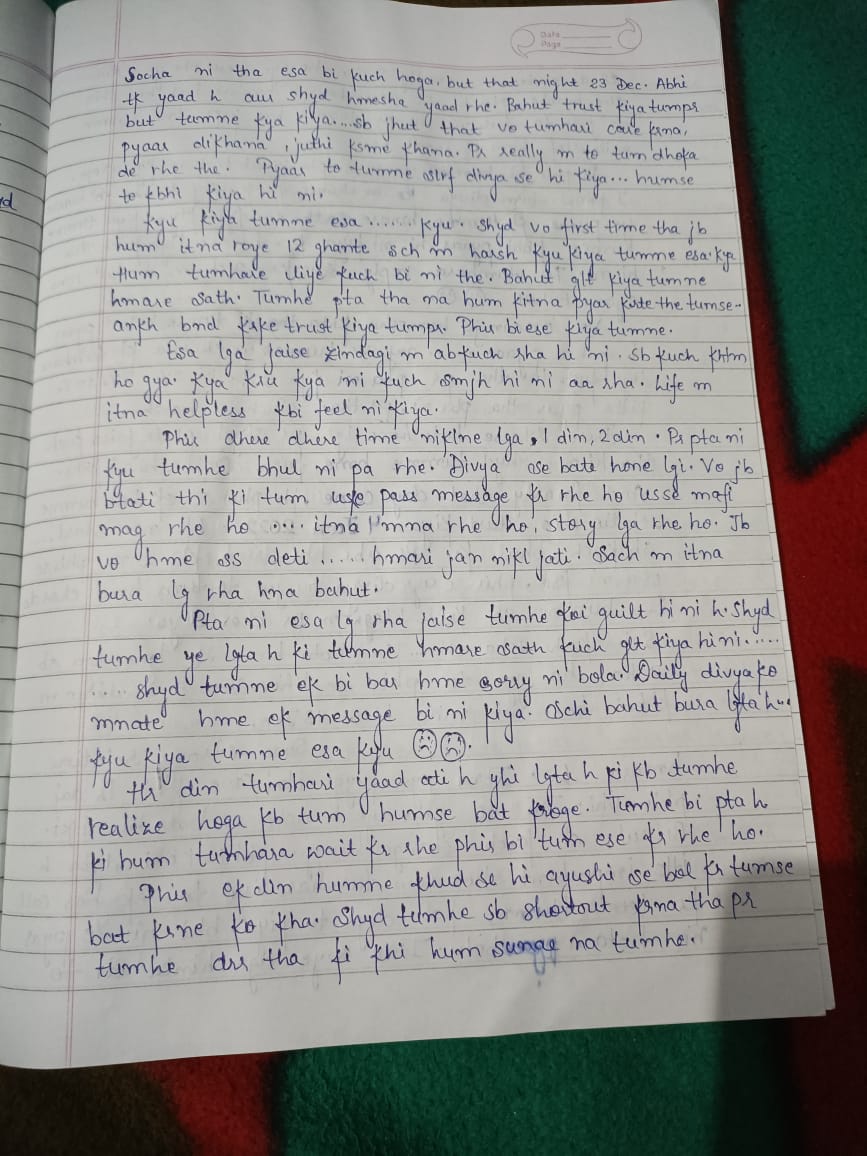 Date
Page
Socha ni tha esa bi kuch hoga, but that night 23 Dec. Abhi
tk yaad h aur shyd hmesha yaad rhe. Bahut trust kiya tumpr
but tumne kya kiya.....sb jhut that vo tumhari care krna,
pyaar dikhana, juthi ksme khana. Pr really m to tum dhoka
de rhe the. Pyaar to tumne sirf divya se hi kiya... humse
to kbhi kiya hi ni.
kyu kiya tumne esa ...... Kyu. Shyd vo first time tha jb
hum itna roye 12 ghante sch m harsh kyu kiya tumne esa. kya
Hum tumhare liye kuch bi ni the. Bahut glt kiya tumne
hmare sath. Tumhe pta tha na hum kitna pyar krte the tumse-
ankh bnd krke trust kiya tumpr. Phir bi ese kiya tumne.
Esa lga jaise zindagi m ab kuch rha hi ni. Sb kuch khtm
ho gya. Kya kru kya ni kuch smjh hi ni aa rha. Life m
itna helpless kbi feel ni kiya.
Phir dhere dhere time niklne lga, 1 din, 2 din. Pr pta ni
kyu tumhe bhul ni pa rhe. Divya se bate hone lgi. Vo jb
btati thi ki tum uske pass message kr rhe ho usse mafi
mag rhe ho .... itna mna rhe ho, story lga rhe ho. Jb
vo hme ss deti ..... hmari jan nikl jati. Sach m itna
bura lg rha hna bahut.
Pta ni esa lg rha jaise tumhe koi guilt hi ni h. Shyd
tumhe ye lgta h ki tumne hmare sath kuch glt kiya hi ni.....
.... shyd tumne ek bi bar hme sorry ni bola. Daily divya ko
mnate hme ek message bi ni kiya. Schi bahut bura lgta h...
kyu kiya tumne esa kyu ☹☹.
Hr din tumhari yaad ati h yhi lgta h ki kb tumhe
realize hoga kb tum humse bat kroge. Tumhe bi pta h
ki hum tumhara wait kr rhe phir bi tum ese kr rhe ho.
Phir ek din humne khud se hi ayushi se bol kr tumse
bat krne ko kha. Shyd tumhe sb shortout krna tha pr
tumhe drr tha ki khi hum sunge na tumhe.